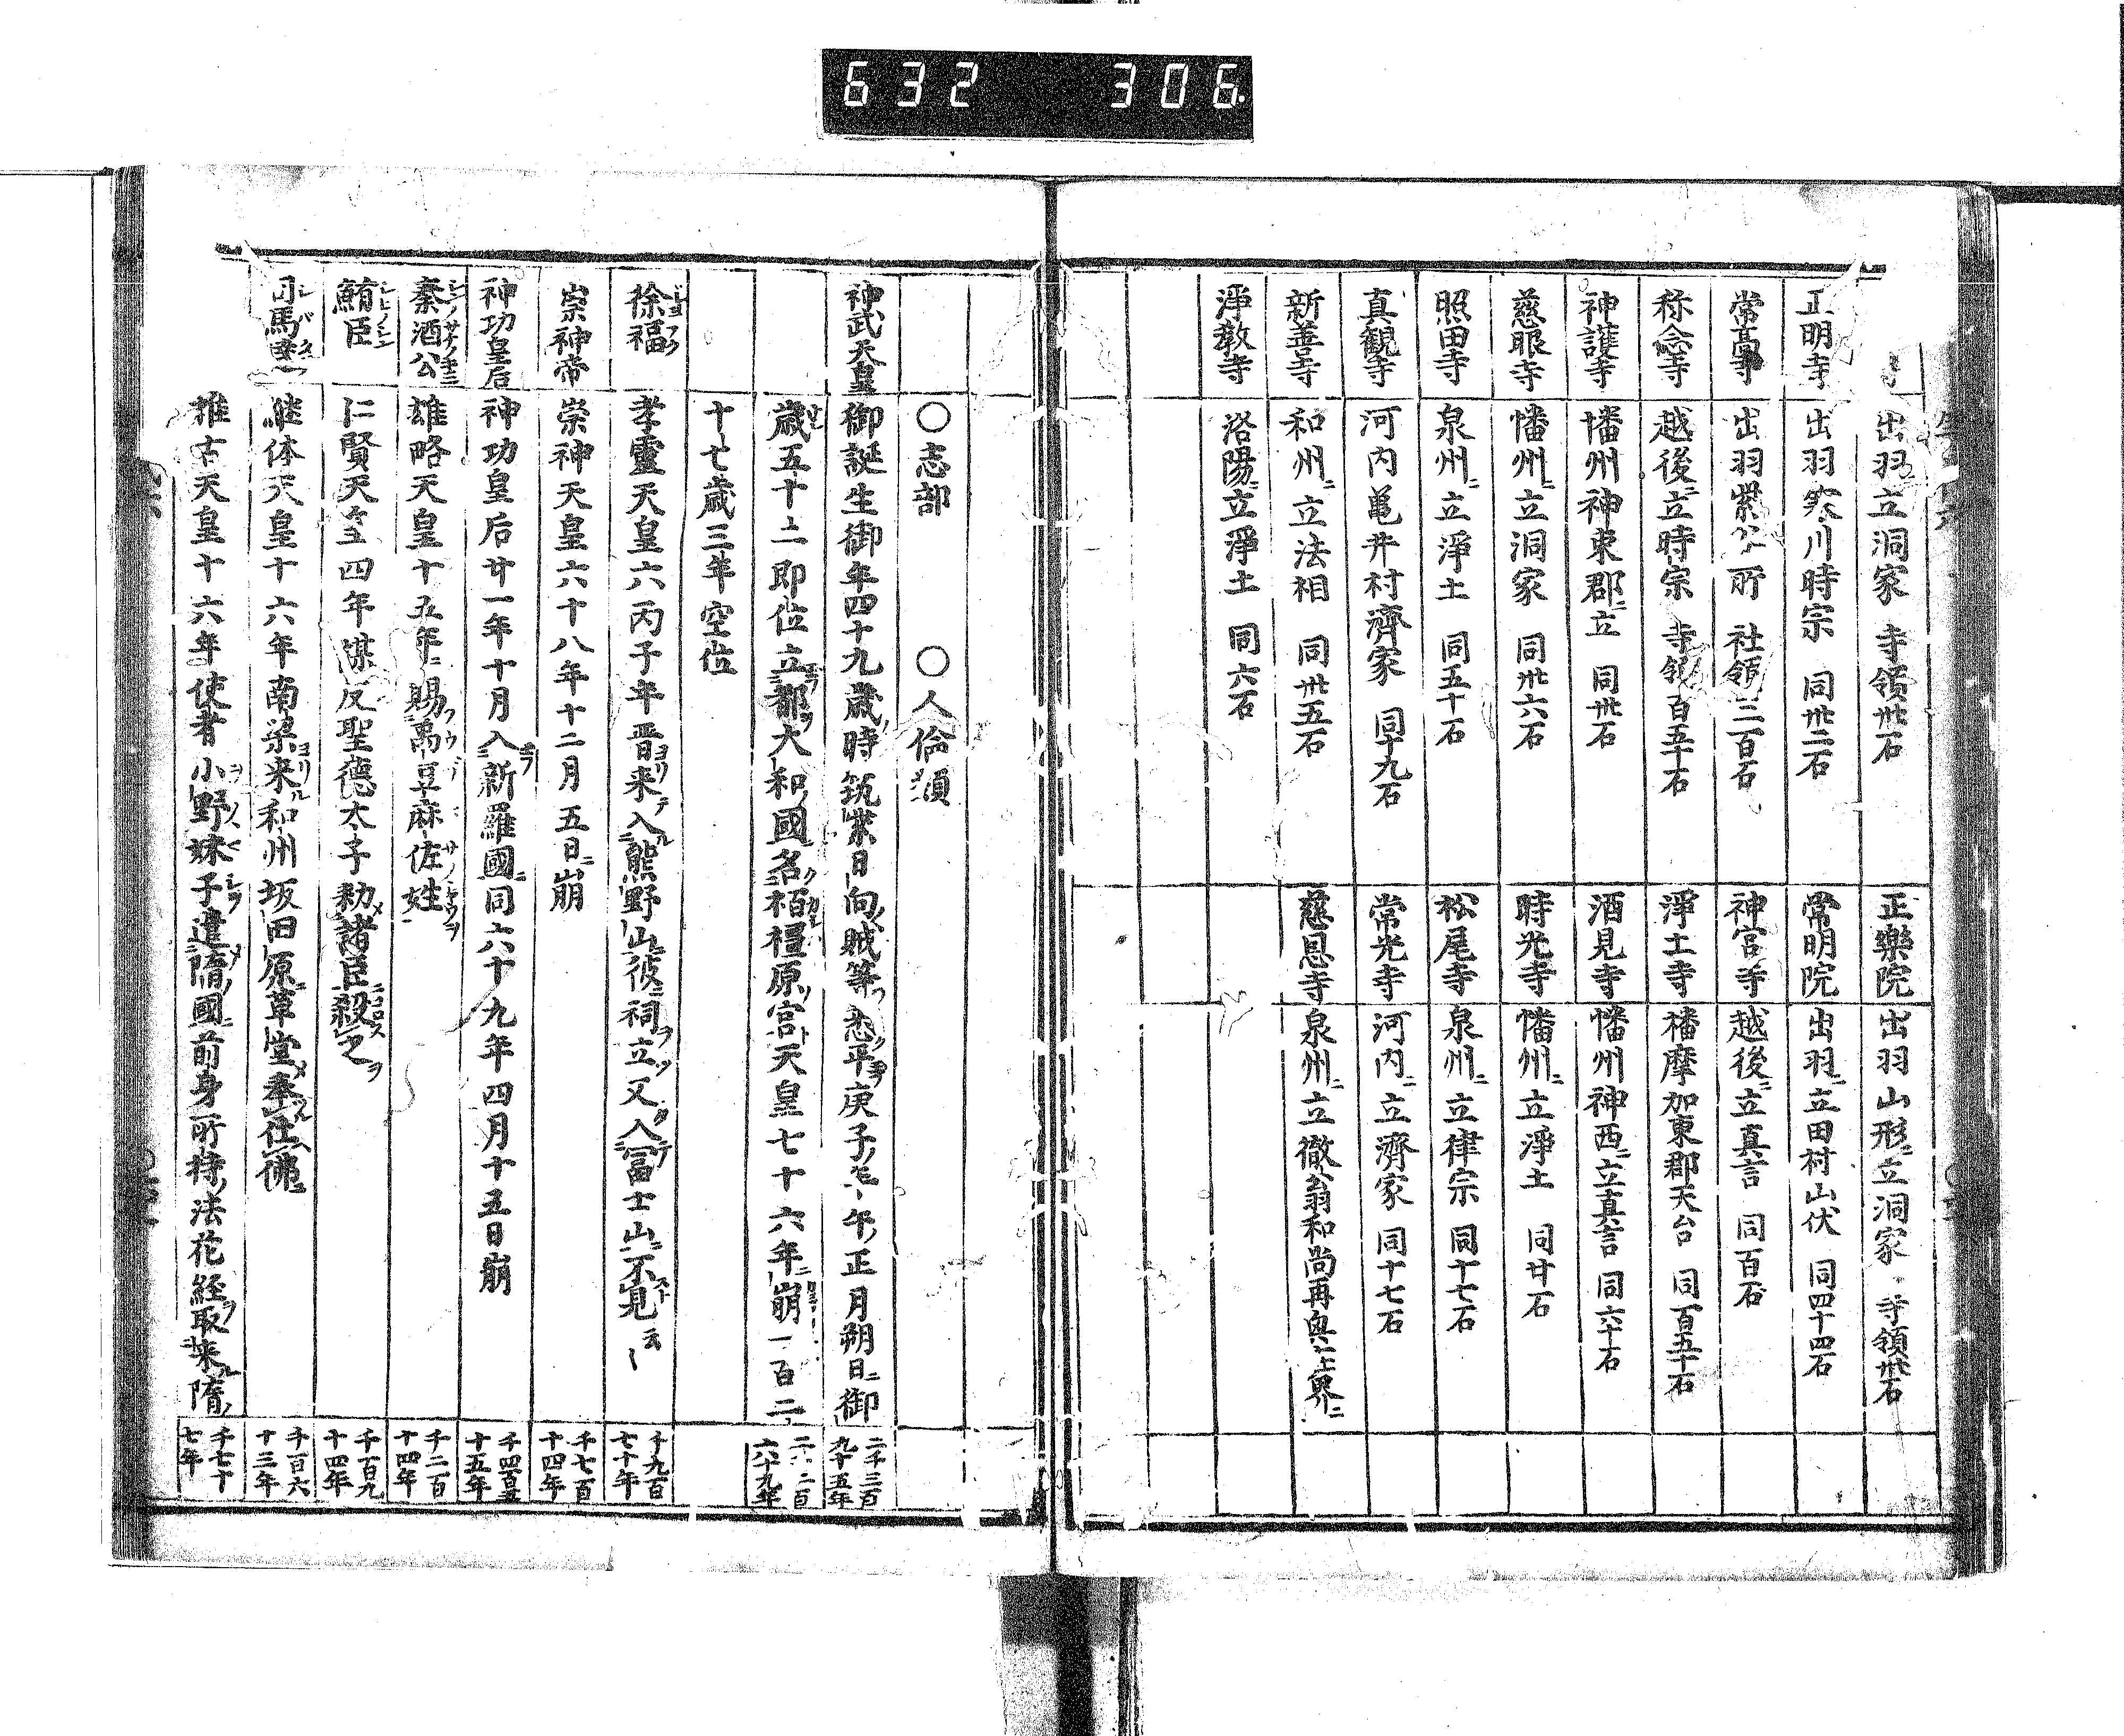 632 306
寺 出羽立洞家 寺領卅石
正明寺 出羽寒川時宗 同卅二石
常高寺 出羽紫 所 社領二百石
称念寺 越後ニ立時宗 寺領百五十石
神護寺 幡州神東郡ニ立 同卅石
慈眼寺 幡州ニ立洞家 同卅六石
照田寺 泉州ニ立淨土 同五十石
真観寺 河内亀井村濟家 同十九石
新善寺 和州ニ立法相 同卅五石
淨教寺 洛陽ニ立淨土 同六石
正樂院 出羽山形ニ立洞家 寺領卅石
常明院 出羽ニ立田村山伏 同四十四石
神宮寺 越後ニ立真言 同百石
淨土寺 播摩加東郡天台 同百五十石
酒見寺 幡州神西ニ立真言 同六十石
時光寺 幡州ニ立淨土 同廿石
松尾寺 泉州ニ立律宗 同十七石
常光寺 河内ニ立濟家 同十七石
慈恩寺 泉州ニ立徹翁和尚再興
〇志部 〇人倫類
神武天皇 御誕生御年四十九歳時筑紫日向賊等悉平庚子 午正月朔日ニ御 二千三百九十五年
歳五十二即位立都大和國名栢橿原宮天皇七十六年ニ崩一百二 六十九年
十七歳三年空位
徐福 孝靈天皇六丙子年晋来入熊野山彼祠立又入富士山ニ不見云〻 千九百七十年
崇神帝 崇神天皇六十八年十二月五日ニ崩 千七百十四年
神功皇后 神功皇后廿一年十月入新羅國同六十九年四月十五日崩 千四百五十五年
秦酒公 雄略天皇十五年ニ賜禹豆麻佐姓 千二百十四年
鮪臣 仁賢天皇四年謀反聖德太子勅諸臣殺之 千百九十四年
司馬達 継体天皇十六年南梁来和州坂田原草堂奉仕佛 千百六十三年
推古天皇十六年使者小野妹子遣隋國前身所持法花経取来隋 千七十七年